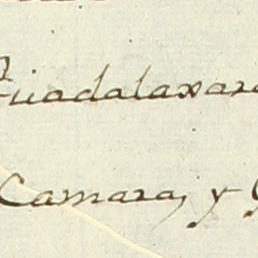 Guadalaxara
Camara, y